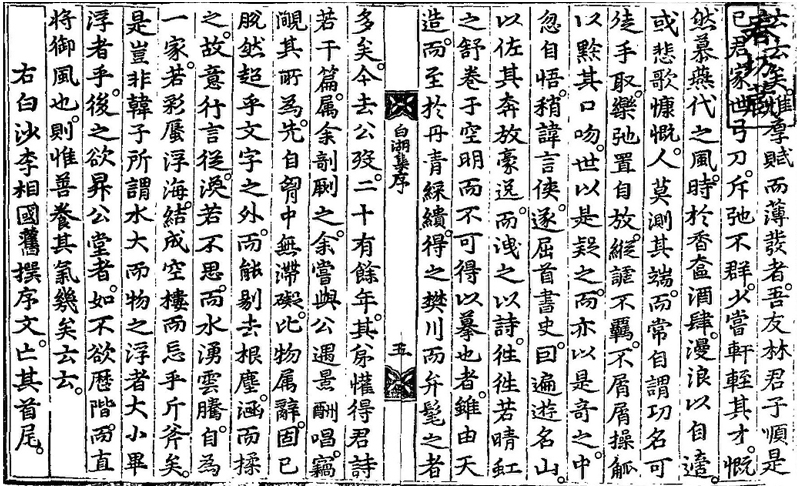 惟厚賦而薄發者。吾友林君子順是
已。君家世弓刀。斥弛不群。少嘗軒輊其才。慨
然慕燕代之風。時於香奩酒肆。漫浪以自適。
或悲歌慷慨。人莫測其端。而常自謂功名可
徒手取。樂弛置自放。縱謔不羈。不屑屑操觚
以黔其口吻。世以是疑之。而亦以是奇之。中
忽自悟。稍諱言俠。遂屈首書史。因遍遊名山。
以佐其奔放豪逸。而洩之以詩。往往若晴虹
之舒卷于空明而不可得以摹也者。雖由天
造。而至於丹青綵繢。得之樊川而弁髦之者
白湖集序
五
多矣。今去公歿二十有餘年。其弟懽得君詩
若干篇。属余剞劂之。余嘗與公遇景酬唱。竊
覸其所為。先自胷中無滯礙。比物属辭。固已
脫然超乎文字之外。而能剔去根塵。涵而揉
之。故意行言從。渙若不思。而水湧雲騰。自為
一家。若彩蜃浮海。結成空樓而忘乎斤斧矣。
是豈非韓子所謂水大而物之浮者大小畢
浮者乎。後之欲昇公堂者。如不欲歷階。而直
將御風也。則惟善養其氣幾矣云云。
右白沙李相國舊撰序文。亡其首尾。